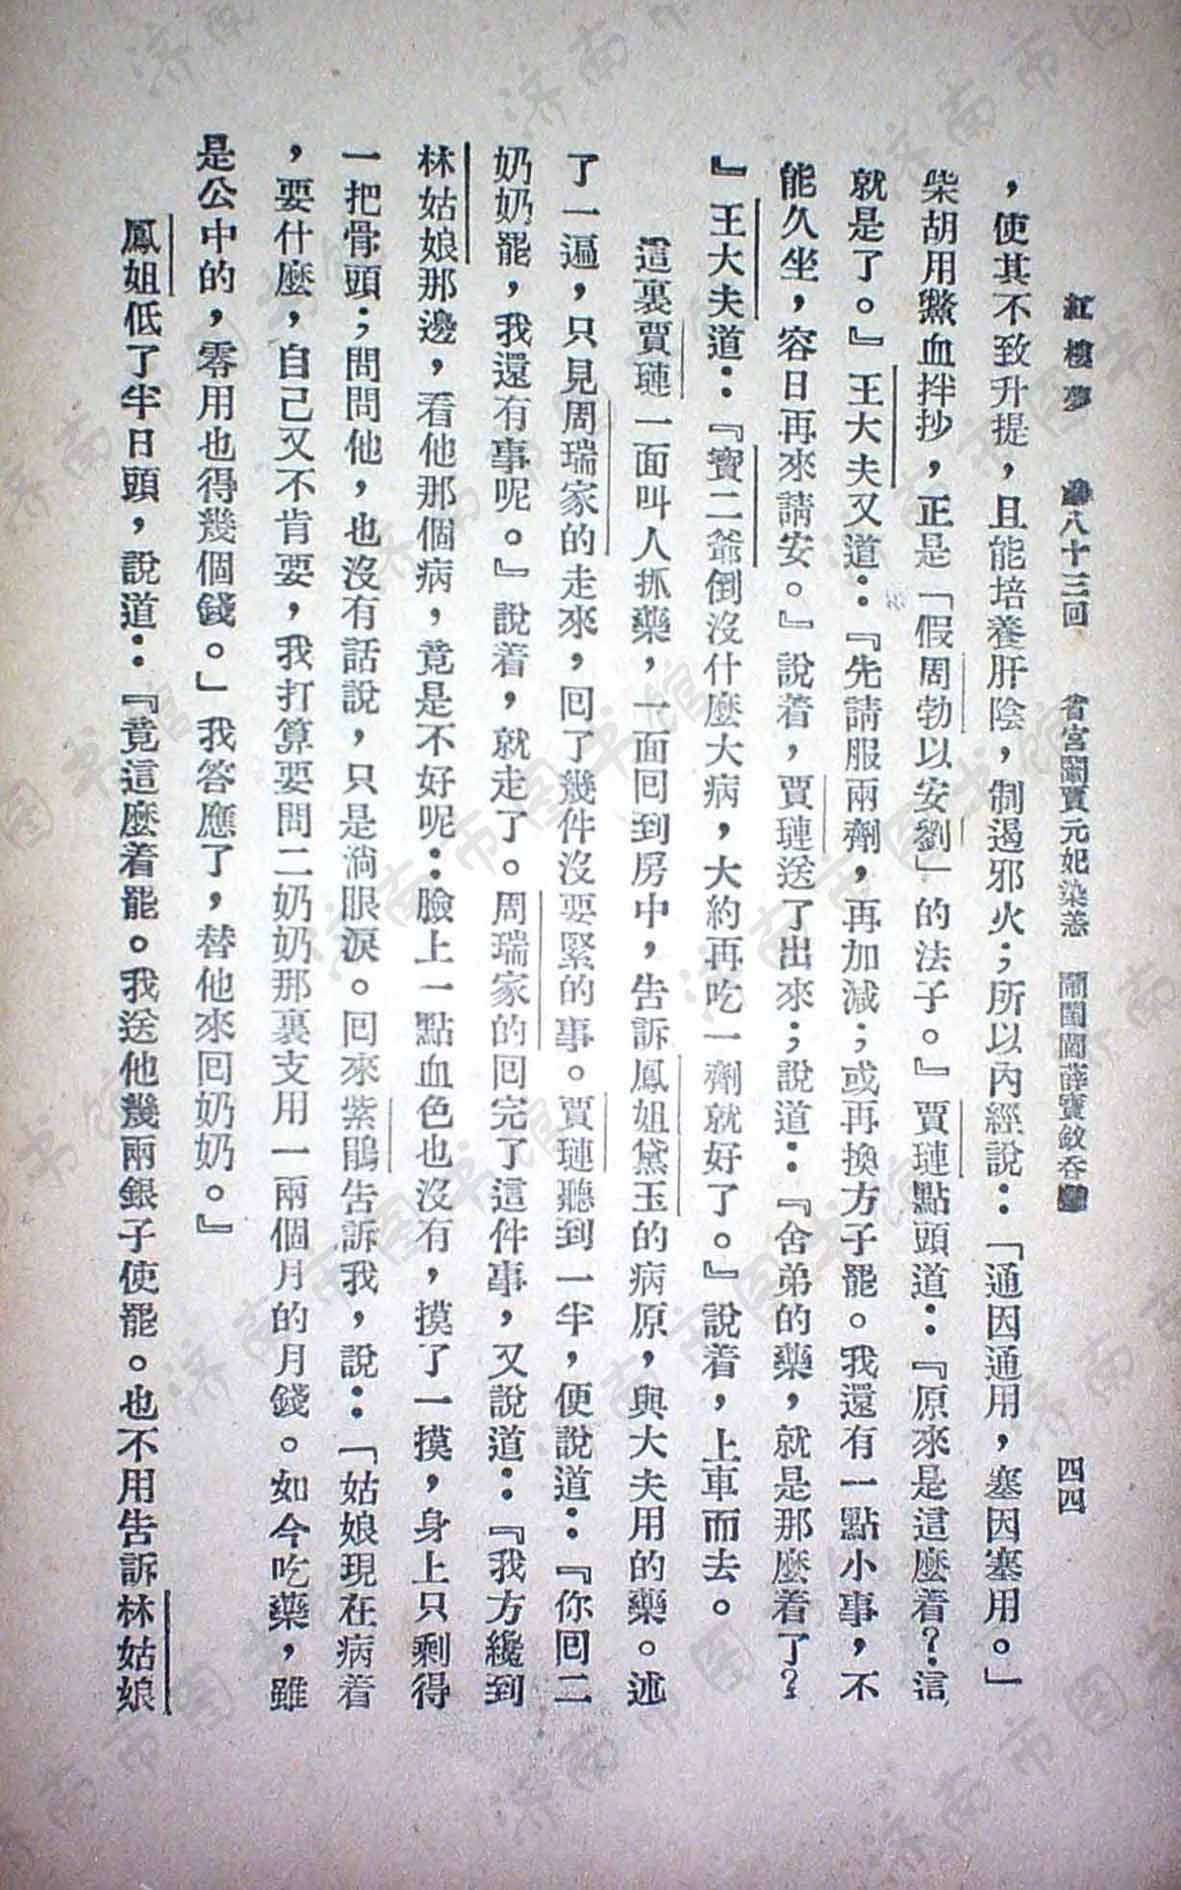 紅樓夢 第八十三回 省宮闈賈元妃染恙 鬧閨閫薛寶釵吞聲 四四
，使其不致升提，且能培養肝陰，制遏邪火；所以內經說：「通因通用，塞因塞用。」
柴胡用鱉血拌抄，正是「假周勃以安劉」的法子。』賈璉點頭道：『原來是這麼着？這
就是了。』王大夫又道：『先請服兩劑，再加減；或再換方子罷。我還有一點小事，不
能久坐，容日再來請安。』說着，賈璉送了出來；說道：『舍弟的藥，就是那麼着了？
』王大夫道：『寶二爺倒沒什麼大病，大約再吃一劑就好了。』說着，上車而去。
這裏賈璉一面叫人抓藥，一面回到房中，告訴鳳姐黛玉的病原，與大夫用的藥。述
了一遍，只見周瑞家的走來，回了幾件沒要緊的事。賈璉聽到一半，便說道：『你回二
奶奶罷，我還有事呢。』說着，就走了。周瑞家的回完了這件事，又說道：『我方纔到
林姑娘那邊，看他那個病，竟是不好呢：臉上一點血色也沒有，摸了一摸，身上只剩得
一把骨頭；問問他，也沒有話說，只是淌眼淚。回來紫鵑告訴我，說：「姑娘現在病着
，要什麼，自己又不肯要，我打算要問二奶奶那裏支用一兩個月的月錢。如今吃藥，雖
是公中的，零用也得幾個錢。」我答應了，替他來回奶奶。』
鳳姐低了半日頭，說道：『竟這麼着罷。我送他幾兩銀子使罷。也不用告訴林姑娘
济南市图书馆